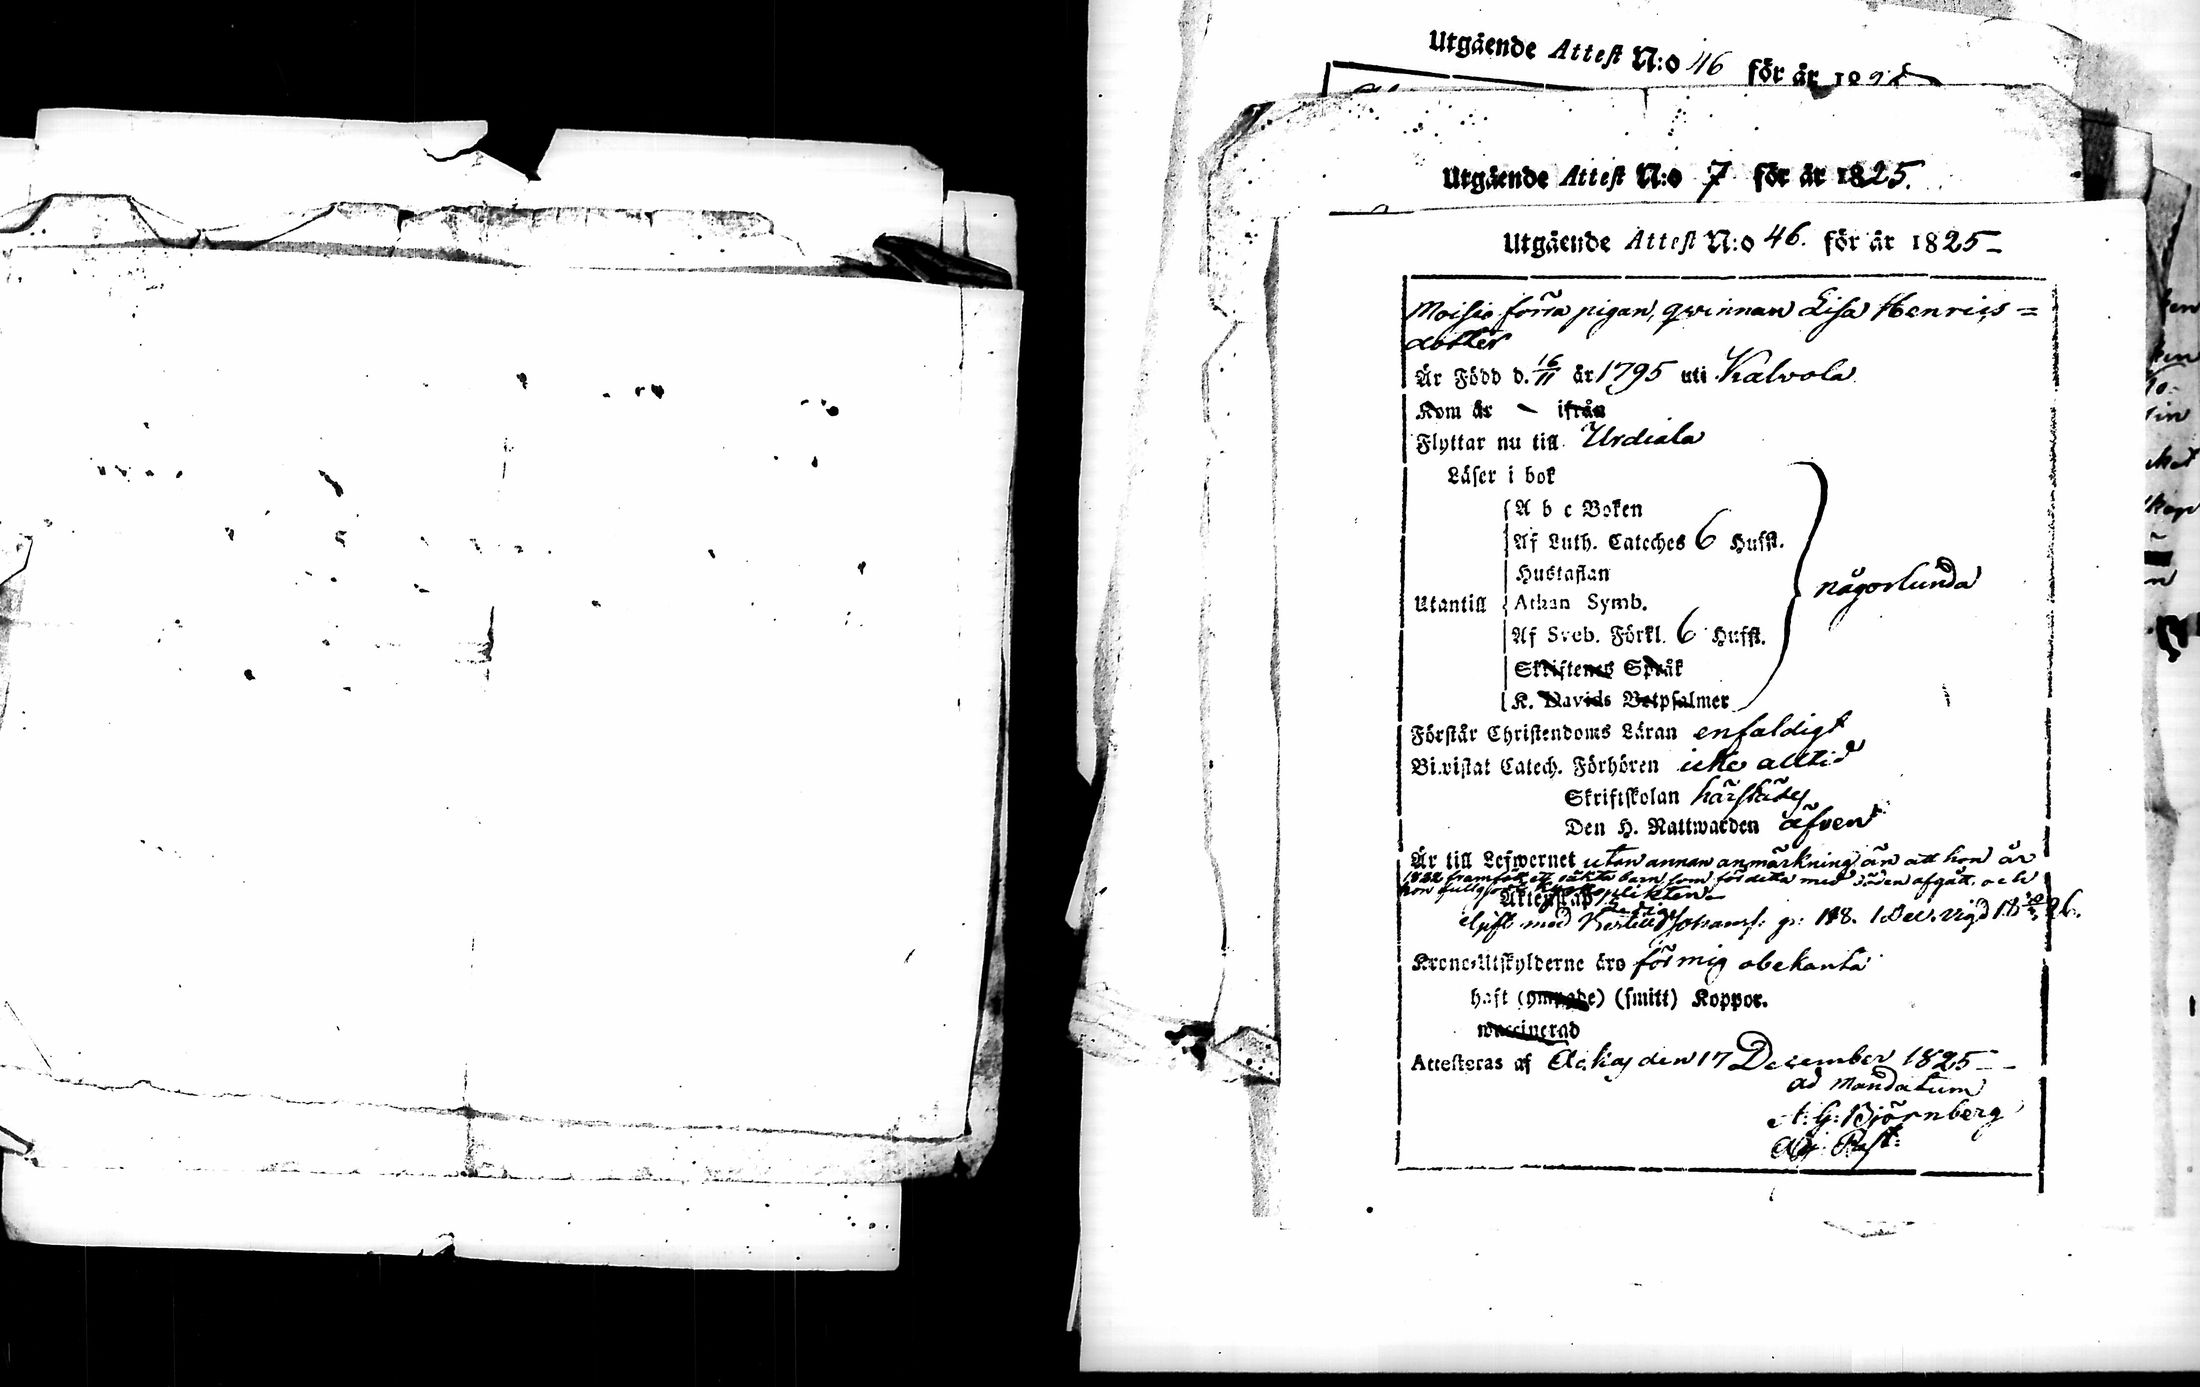 Utgående Attest N:o 46 för år 182
Utgående Attest N:o 7 för år 1825.
Utgående Attest N:o 46. för år 1825
Moisio förra pigan, qwinnan Lisa Henrics=
dotter
Är Född d. 16/11 år 1795 uti Kalvola
Kom år – ifrån
Flyttar nu till Urdiala
Läser i bok
A b c Boken
Af Luth. Cateches 6 Hufst.
Hustaflan
Utantill Athan Symb.
någorlunda
Af Sveb. Förkl. 6 Hufst.
Skriftenes Språk
K. Davids Botpsalmer
Förstår Christendoms Läran enfaldigt
Bivistat Catech. Förhören icke alltid
Skriftskolan härstädes
Den H. Nattwarden äfven
Är till Lefwernet utan annan anmärkning än att hon är
1822 framfödt ett oäkta barn som för detta med döden afgått, och
hon fullgjort kyrkoplikten
Äktenskap
Gift med Johansf. p: 118. 1 Dec. vigd 18 26.
Krono-Utskylderne äro för mig obekanta
haft (ympade) (smitt) Koppor.
waccinerad
Attesteras af Ackas den 17 December 1825
ad mandatum
A: G: Björnberg
Adj: Past: